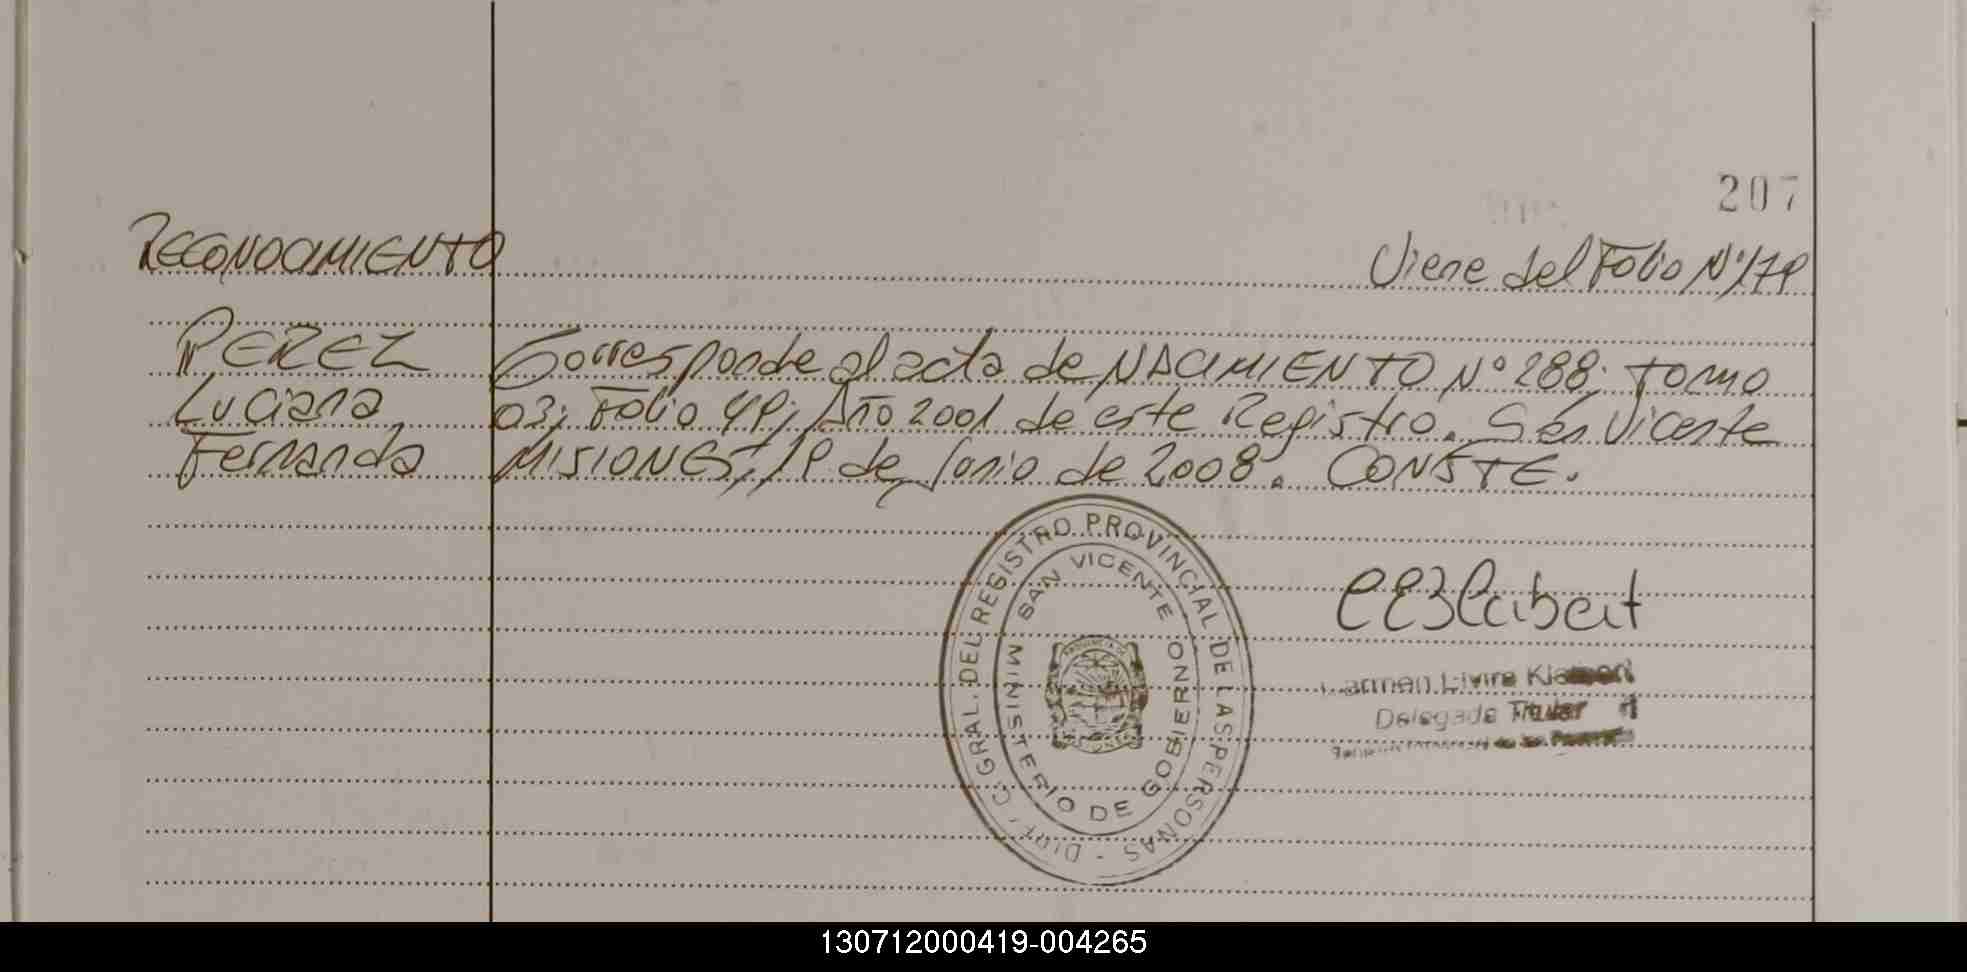 207
RECONOCIMIENTO
Viene del Folio Nº 179
PEREZ
Luciana
Fernanda
Corresponde al acta de NACIMIENTO Nº 288; TOMO
03; Folio 49; Año 2001 de este Registro. San Vicente
MISIONES, 19 de Junio de 2008. CONSTE.
GRAL. DEL REGISTRO PROVINCIAL DE LAS PERSONAS
SAN VICENTE
MINISTERIO DE GOBIERNO
Carmen
Delegada Titular
130712000419-004265